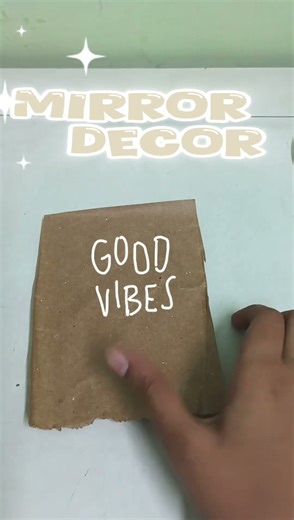 MIRROR
DECOR
GOOD
VIBES